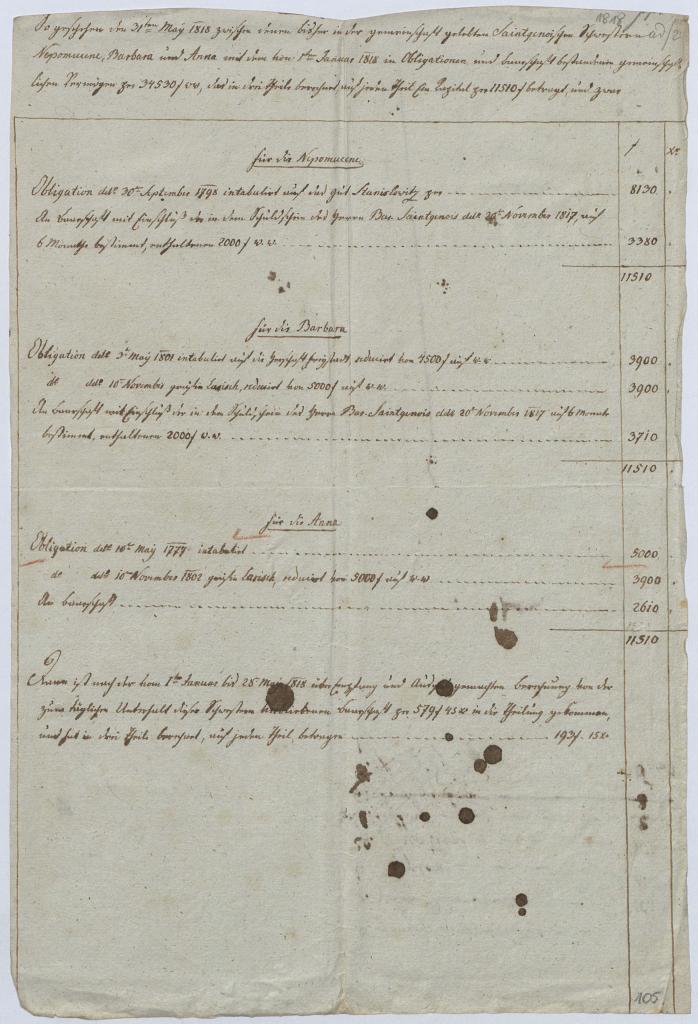 1818
So geschehen den 31ten May 1818 zwischen denen bisher in der gemeinschaft gelebten Saintgenoischen Schwestern ad/2
Nepomucene, Barbara und Anna mit dem von 1ten Januar 1818 in Obligationen und baarschaft bestandenen gemeinschaft-
lichen Vermögen per 34530 f w.w., das in drei Theile berechnet auf jeden Theil Ein Kapital per 11510 f betragt, und zwar
f xr
für die Nepomucene.
Obligation ddto 30ten September 1798 intabulirt auf das gut Stanislowitz per 8130 .
An baarschaft mit Einschluß der in dem Schuldschein des Herrn Bar. Saintgenois ddto 20t November 1817, auf
6 Monathe bestimmt, enthaltenen 2000 f w.w. 3380 .
11510
für die Barbara
Obligation ddto 3t May 1801 intabulirt auf die Herschaft freystadt, reducirt von 4500 f auf w.w. 3900 .
do ddto 10t November reducirt von 5000 f auf w.w. 3900 .
An baarschaft mit Einschluß der in dem Schuldschein des Herrn Bar. Saintgenois ddto 20t November 1817 auf 6 Monate
bestimmt, enthaltenen 2000 f w.w. 3710 .
11510
für die Anna
Obligation ddto 10ten May 1777 intabulirt 5000
do ddto 10ten November 1802 reducirt von 5000 f auf w.w. 3900 .
An baarschaft 2610 .
11510
ist nach der vom 1ten Januar bis 28 May 1818 über Empfang und gemachten berechnung von der
zum täglichen Unterhalt dieser Schwestern baarschaft per 579 f 45 xr in die Theilung gekommen,
und hat in drei Theile berechnet, auf jeden Theil betragen 193 f. 15 x.
105